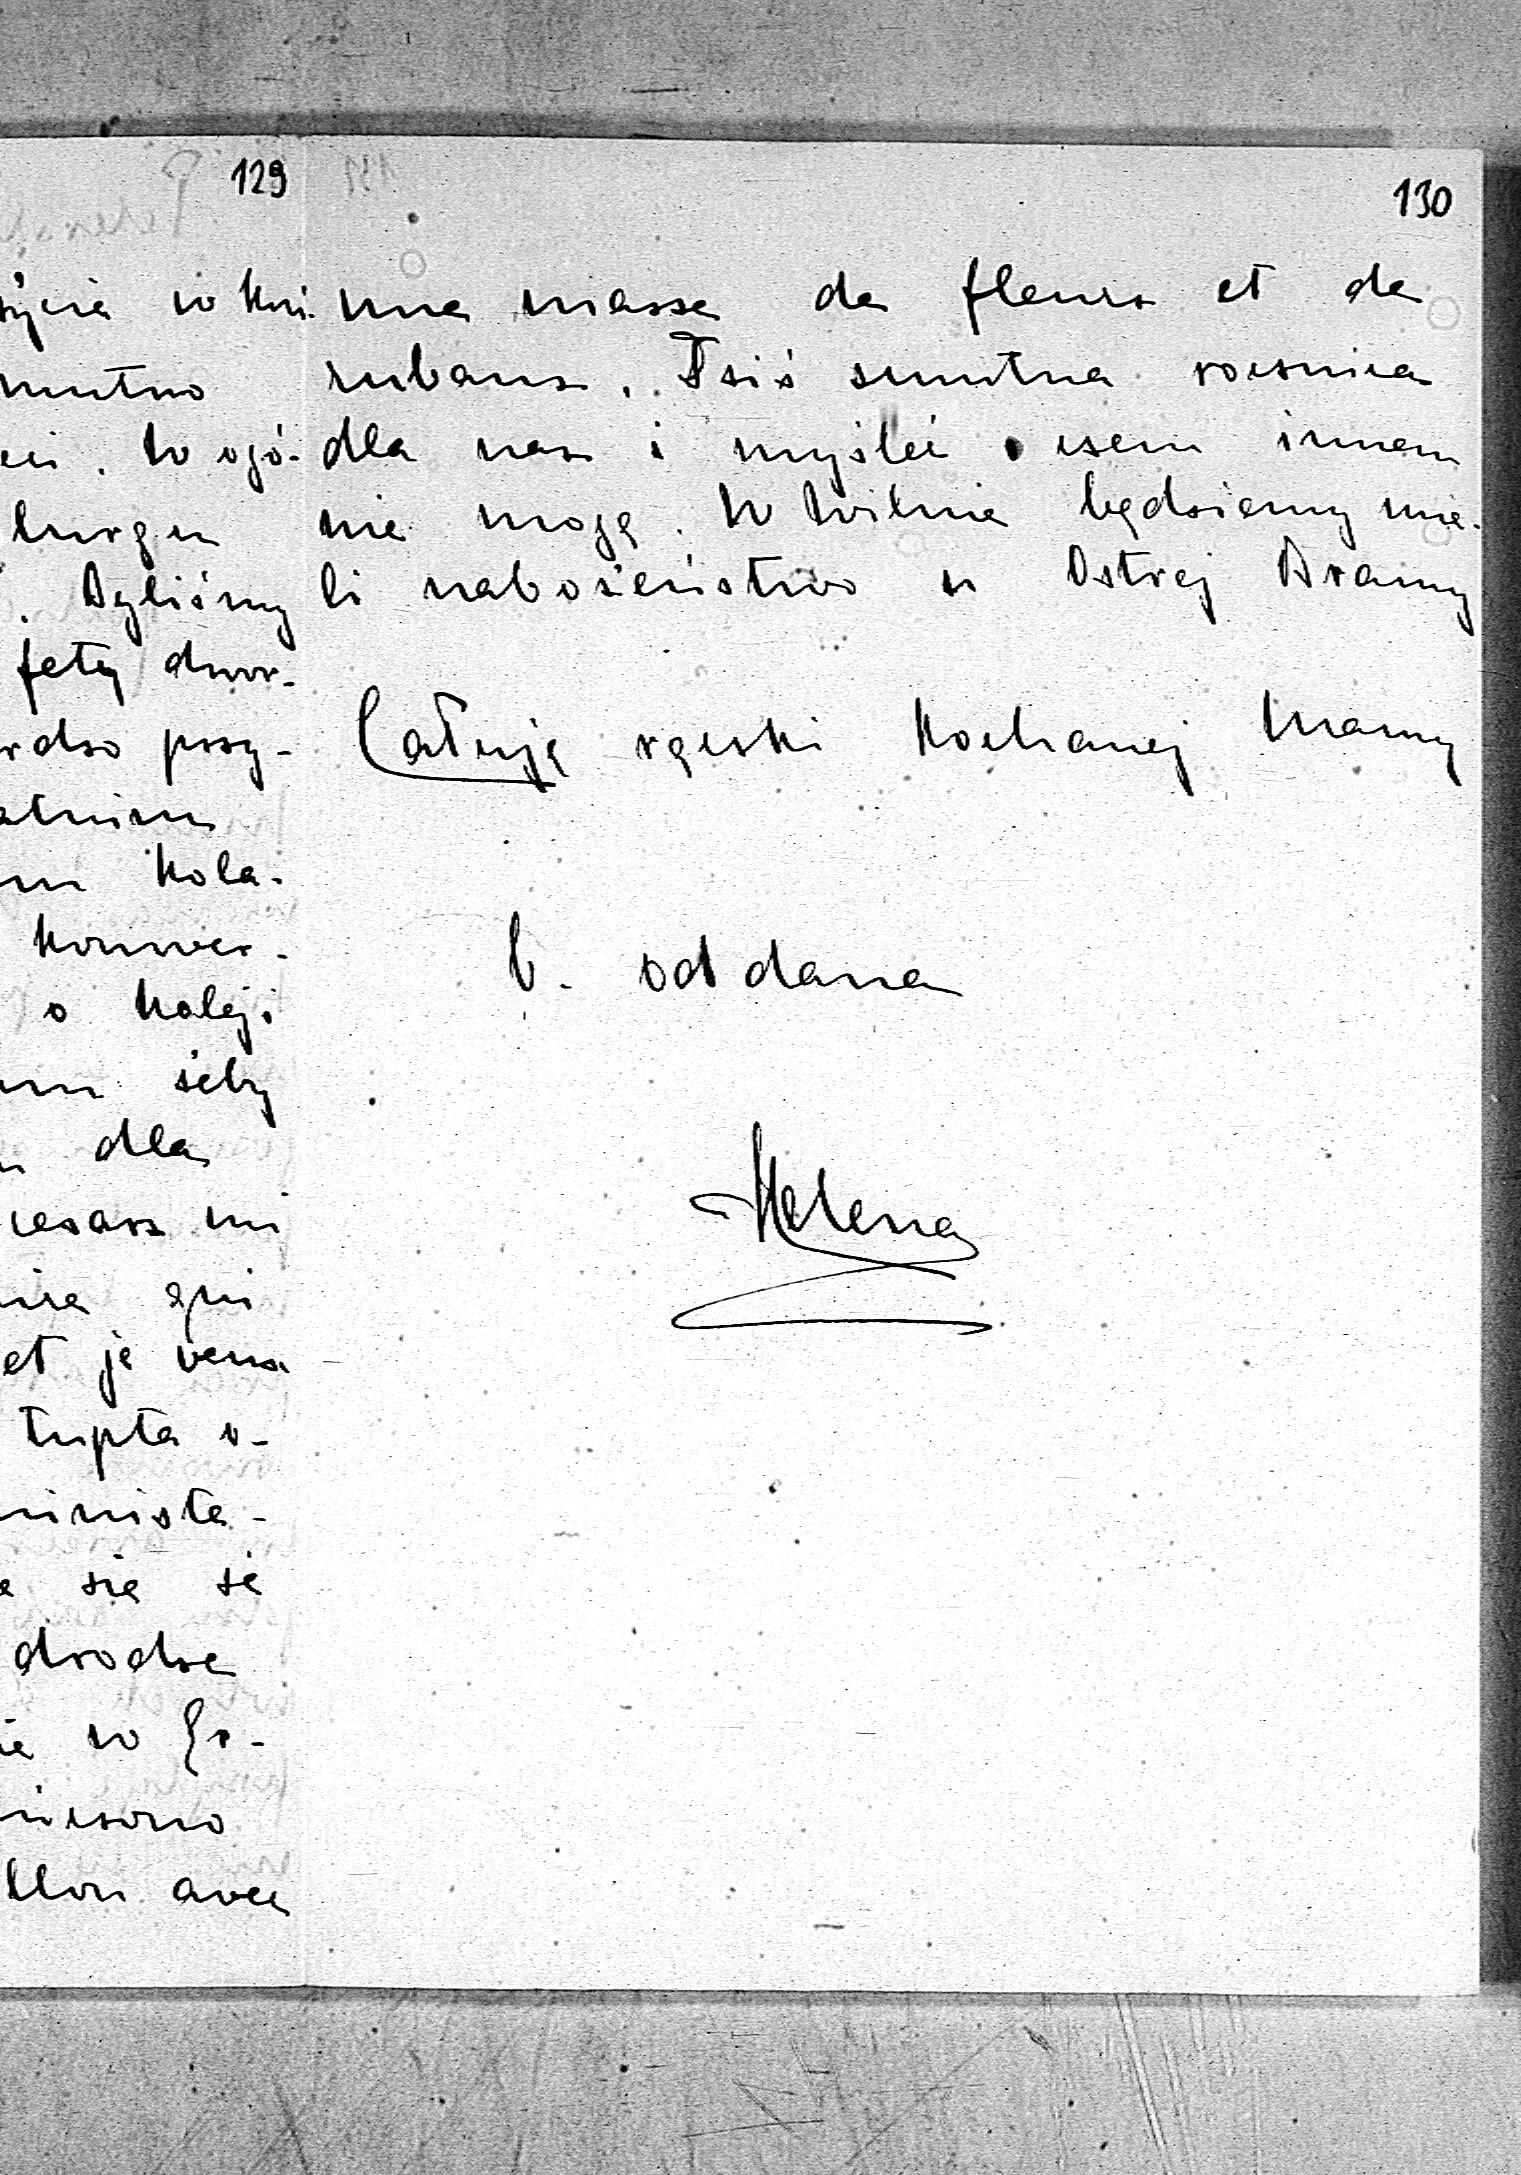 129
życia w kni.
mutno
. W ogó-
burgu
. Byliśmy
fetę dwor-
rdzo przy-
atnim
Kola-
Konwer-
o Koleji
żeby
dla
cesarz mi
qui
et je veux
tupta o-
ministe-
się że
drodze
w Gr-
niesono
avec
130
une masse de fleurs et de
rubans. Dziś smutna rocznica
dla nas i myśleć o czem innem
nie mogę. W Wilnie będziemy mie-
li nabożeństwo u Ostrej Bramy
Całuję rączki Kochanej Mamy
b. oddana
Helena